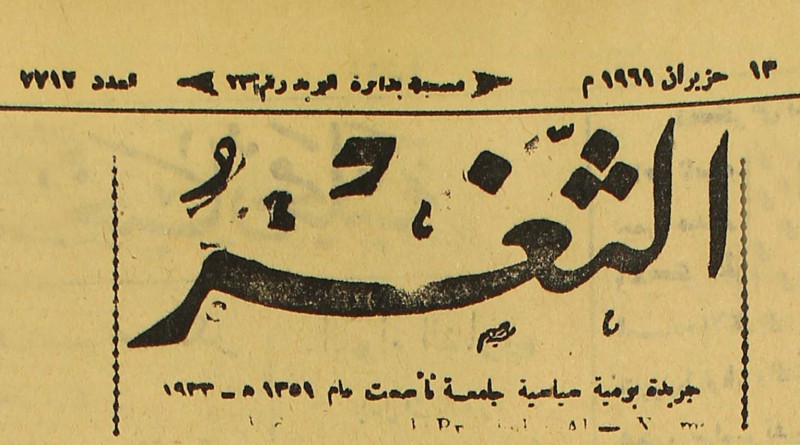 ١٣ حزيران ١٩٦١ م مسجلة بدائرة البريد رقم ٢٣١ العدد ٧٧١٢
الثغر
جريدة يومية سياسية جامعة تأسست عام ١٣٥١ ه ـ ١٩٣٣